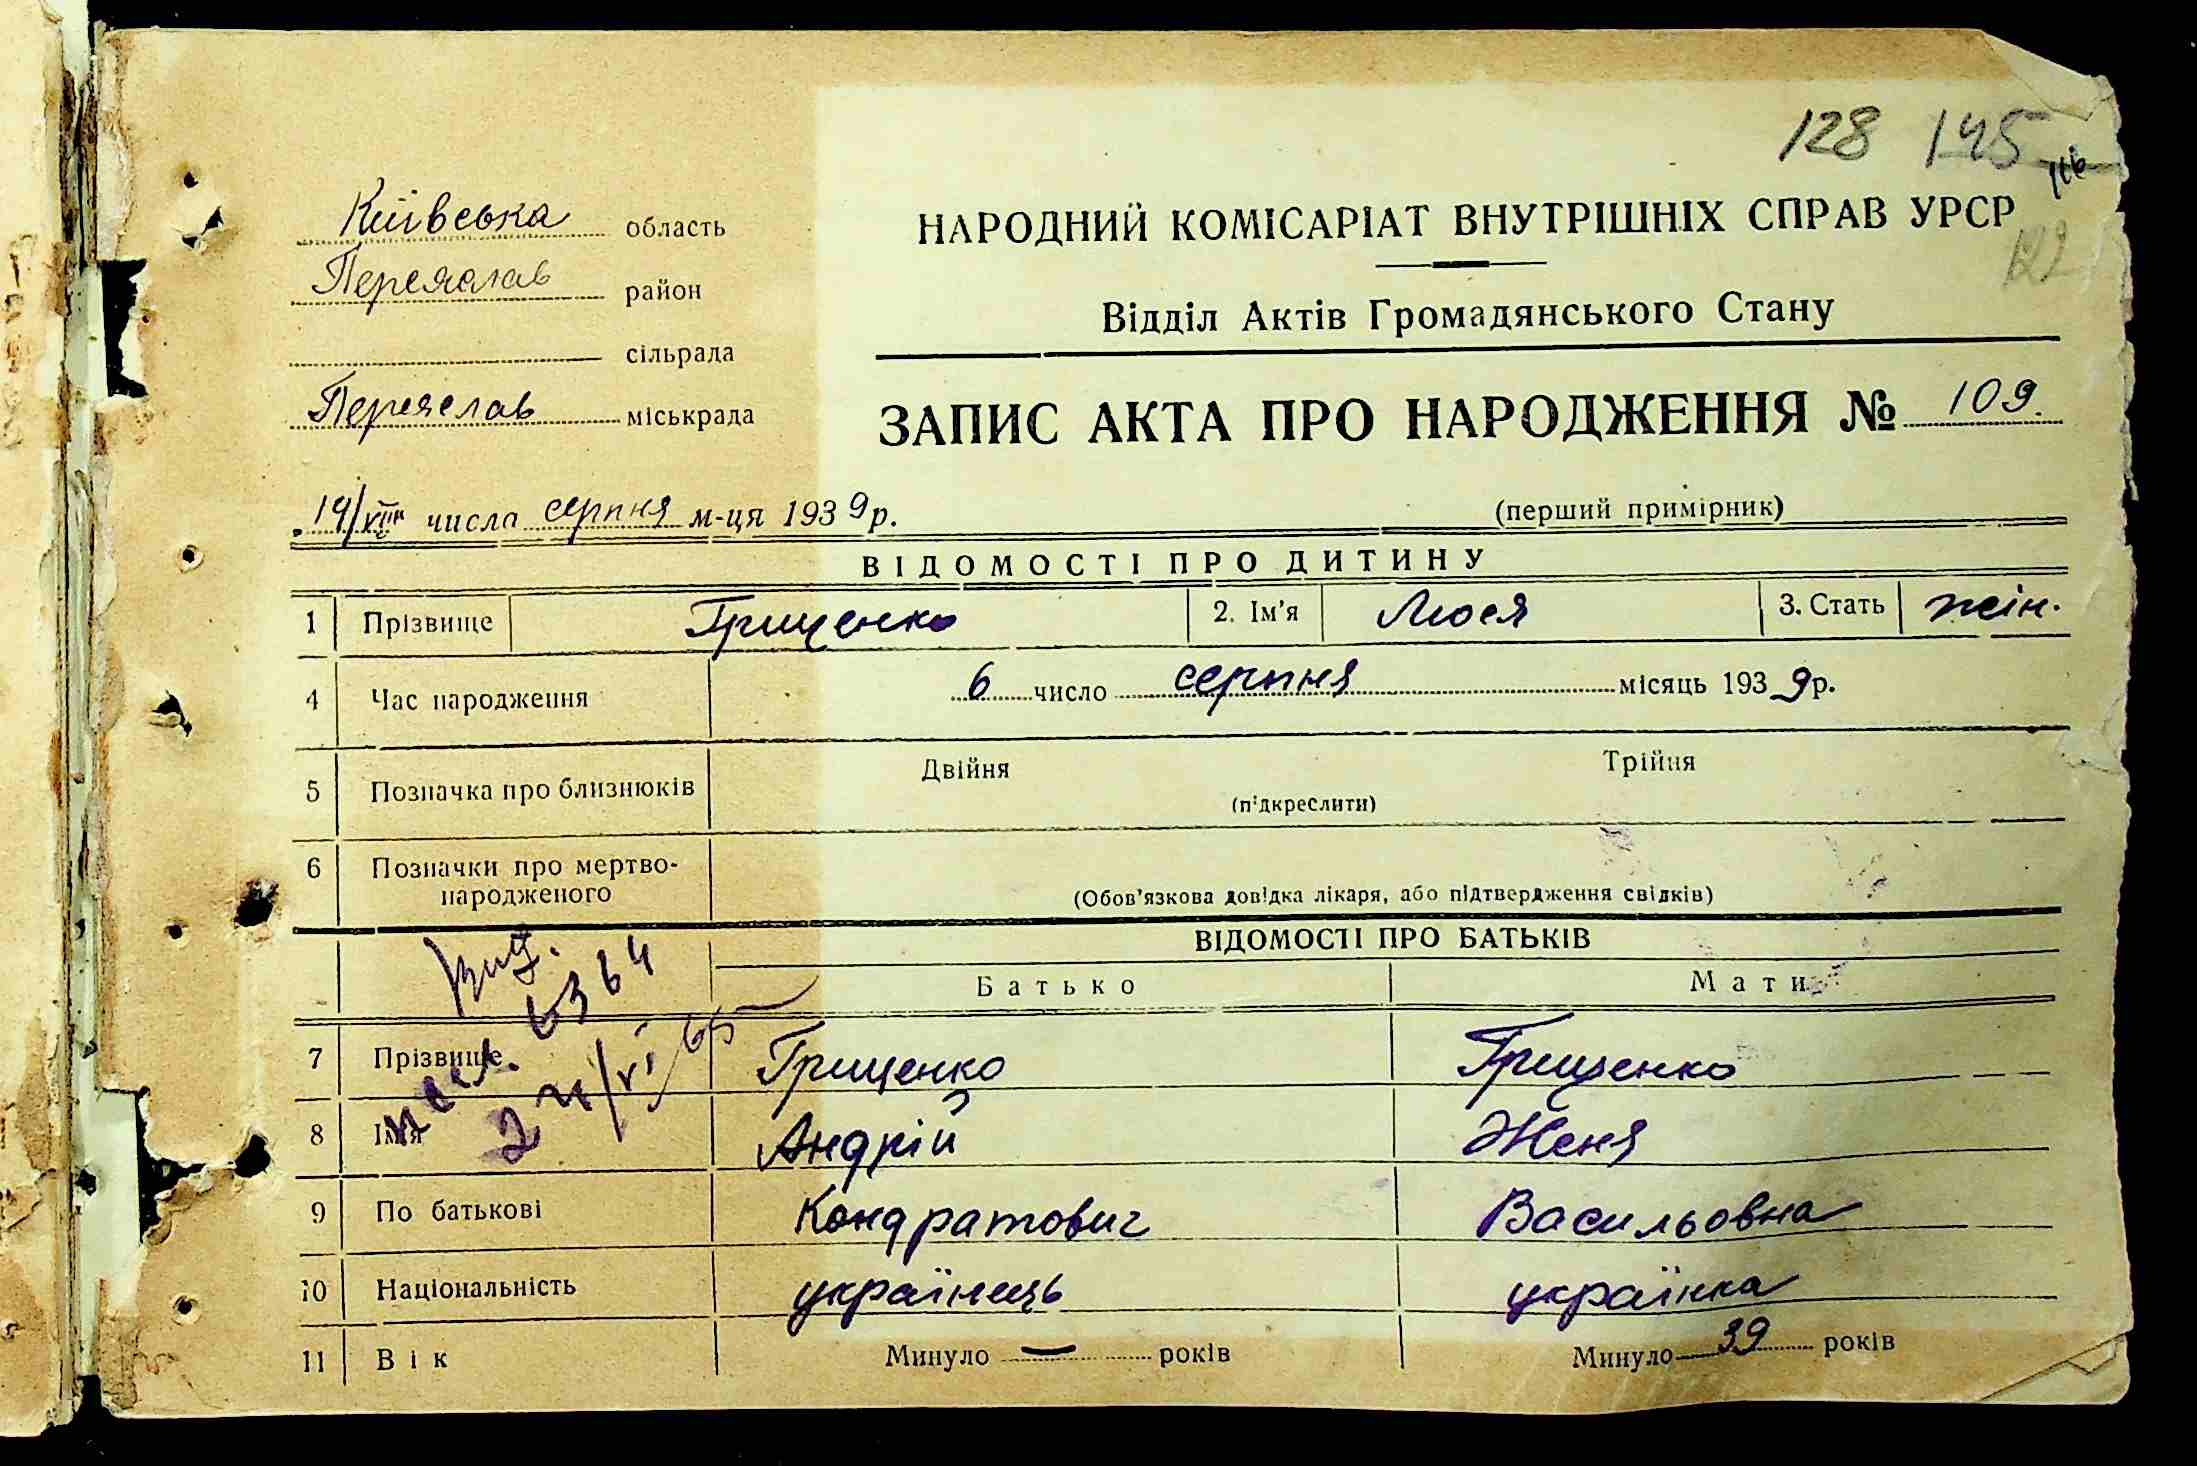 128 145
116
122
Київська область
НАРОДНИЙ КОМІСАРІАТ ВНУТРІШНІХ СПРАВ УРСР
Переяслав район
Відділ Актів Громадянського Стану
сільрада
Переяслав міськрада
ЗАПИС АКТА ПРО НАРОДЖЕННЯ № 109.
14/VIII числа серпня м-ця 1939 р.
(перший примірник)
ВІДОМОСТІ ПРО ДИТИНУ
1 Прізвище Грищенко 2. Ім'я Люся 3. Стать жін.
4 Час народження 6 число серпня місяць 1939 р.
5 Позначка про близнюків Двійня Трійня
(підкреслити)
6 Позначки про мертво-
народженого
(Обов'язкова довідка лікаря, або підтвердження свідків)
ВІДОМОСТІ ПРО БАТЬКІВ
Батько Мати
7 Прізвище Грищенко Грищенко
8 Ім'я Андрій Женя
9 По батькові Кондратович Васильовна
10 Національність українець українка
11 Вік Минуло — років Минуло 39 років